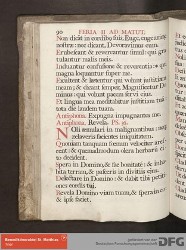 90 FERIA II AD MATUT.
Non dicát in córdibus suis, Euge, euge ánimæ
nostræ: nec dicant, Devorávimus eum.
Erubéscant & revereántur simul: qui gra-
tulantur malis meis.
Induántur confusióne & reveréntia: qui
magna loquuntur super me.
Exúltent & læténtur qui volunt justítiam
meam; & dicant semper, Magnificétur Dó-
minus: qui volunt pacem servi ejus.
Et lingua mea meditábitur justítiam tuā:
tota die laudem tuam.
Antiphona. Expugna impugnantes me.
Antiphona. Revela. Ps. 36.
NOli æmulári in malignántibus: neq;
zeláveris faciéntes iniquitátem.
Quóniam tanquam fœnum velóciter aréf-
cent: & quemádmodum ólera herbarū ci-
to décident.
Spera in Dómino, & fac bonitáté: & in-
hábita terram, & pascéris in divítiis ejus.
Delectáre in Dómino: & dabit tibi petiti-
ónes cordis tui.
Révela Dómino viam tuam, & spera in eo:
& ipse fáciet.
DFG